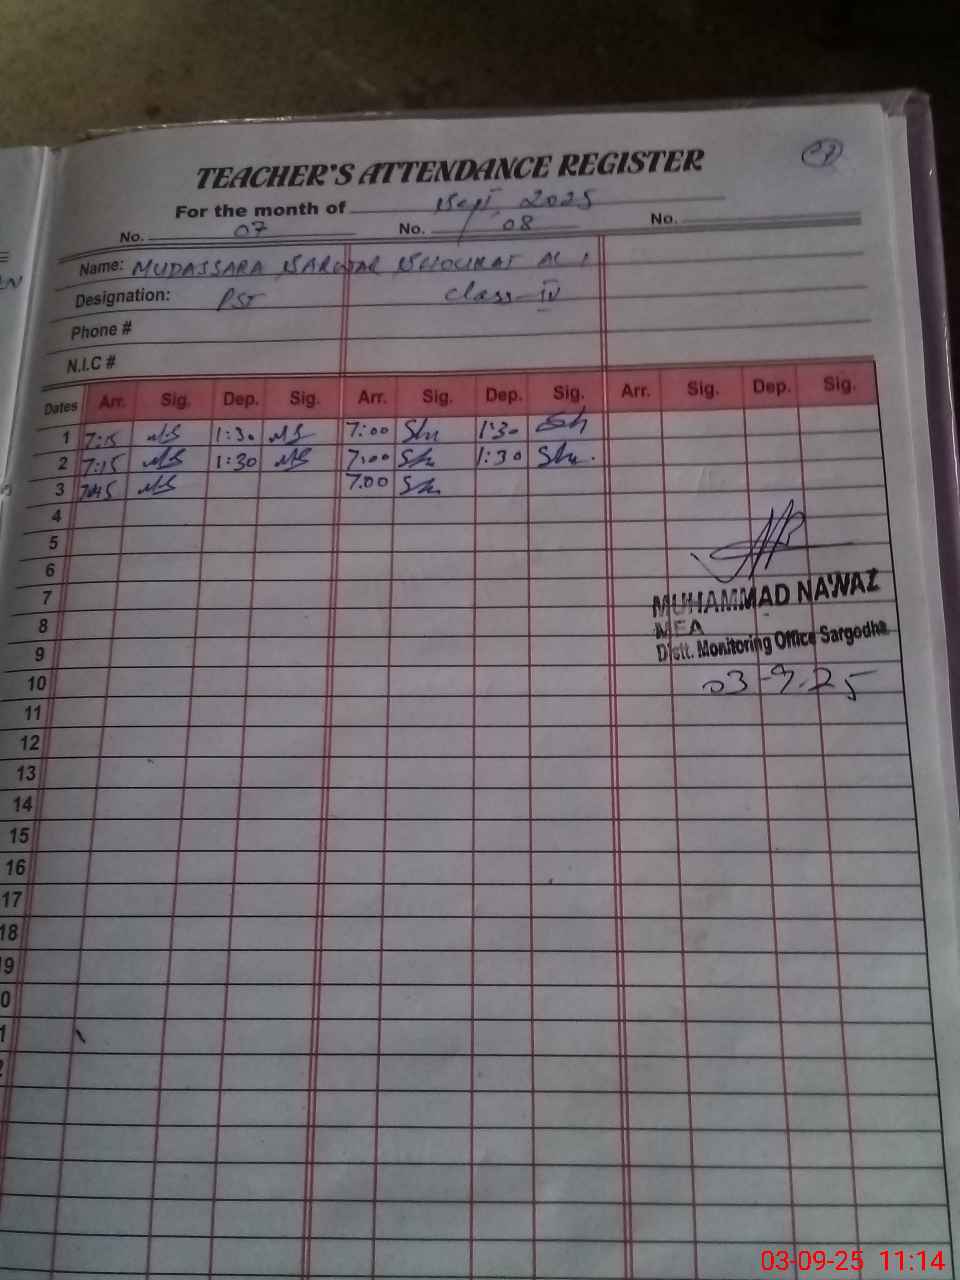 TEACHER'S ATTENDANCE REGISTER
For the month of Sept, 2025
No. 07 No. 08 No.
Name: MUDASSARA SHOUKAT ALI
Designation: PST Class-IV
Phone #
N.I.C #
Dates Arr. Sig. Dep. Sig. Arr. Sig. Dep. Sig. Arr. Sig. Dep. Sig.
1 7:15 MS 1:30 MS 7:00 Sh 1:30 Sh
2 7:15 MS 1:30 MS 7:00 Sh 1:30 Sh
3 MS 7:00 Sh
4
5
6
7
MUHAMMAD NAWAZ
8
MEA
9
Distt. Monitoring Office Sargodha
10
03-9-25
11
12
13
14
15
16
17
18
03-09-25 11:14